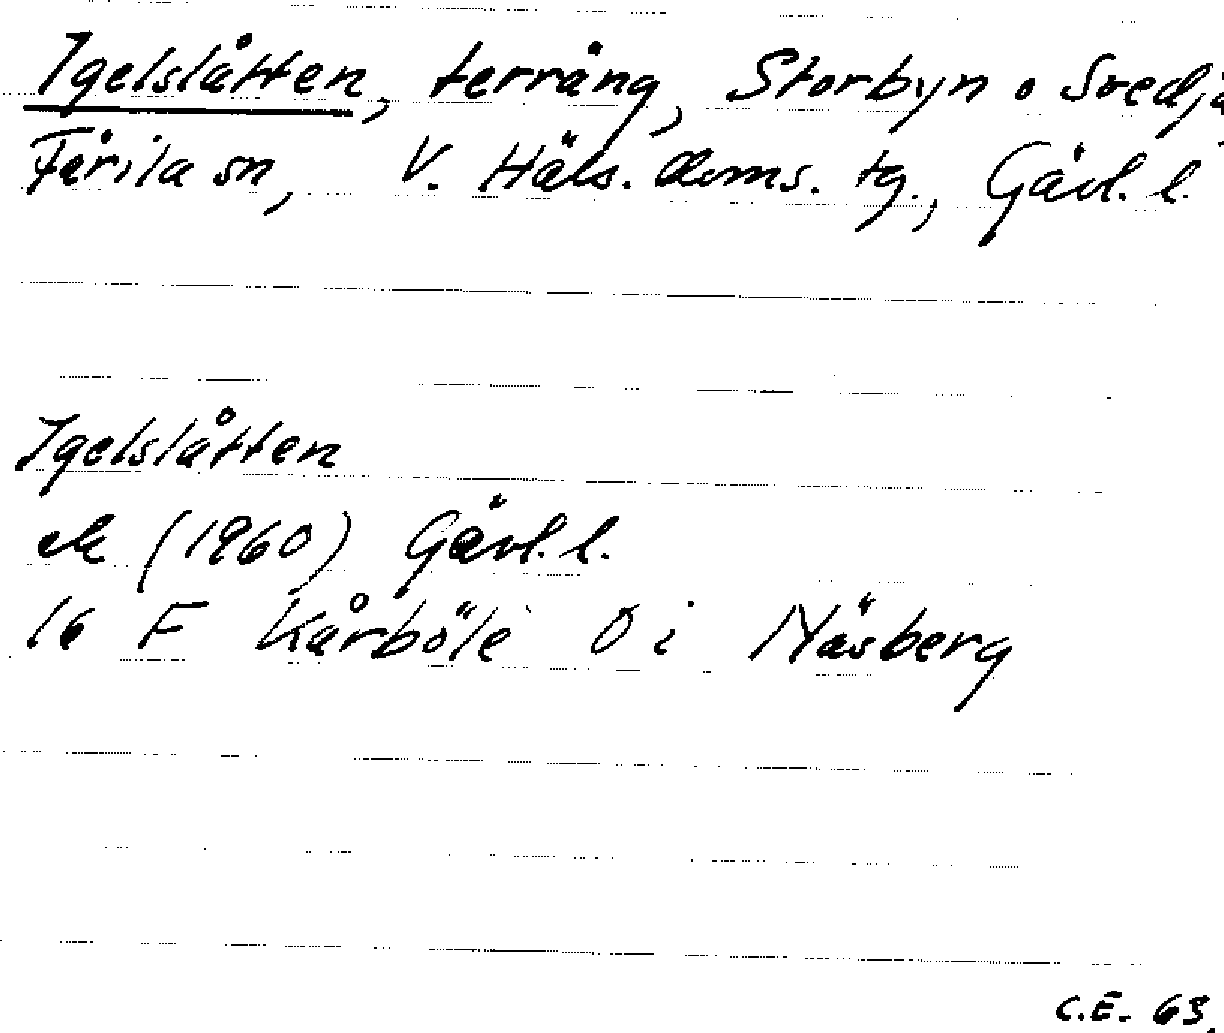 Igelslåtten, terräng, Storbyn o Svedja
Färila sn, V. Häls. doms. tg., Gävl. l.
Igelslåtten
ek (1960) Gävl. l.
16 F Kårböle Ö i Näsberg
C.E. 63.